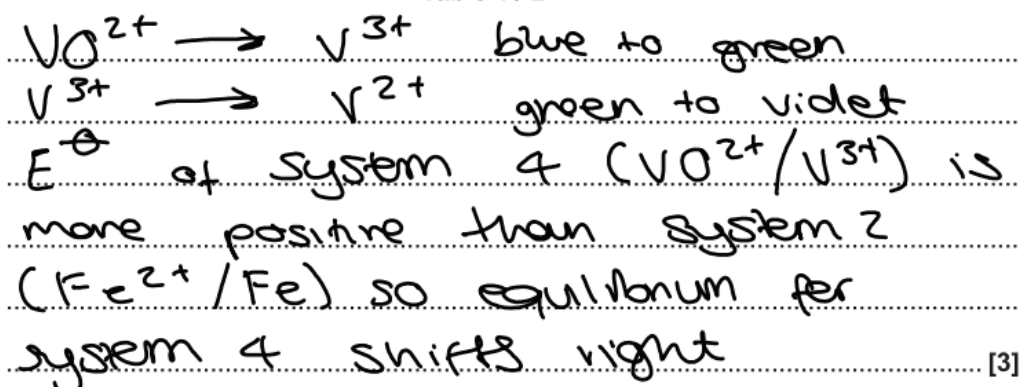 VO²⁺ ⟶ V³⁺ blue to green
V³⁺ ⟶ V²⁺ green to violet
E^⦵ of system 4 (VO²⁺/V³⁺) is
more positive than system 2
(Fe²⁺/Fe) so equilibrium for
system 4 shifts right [3]